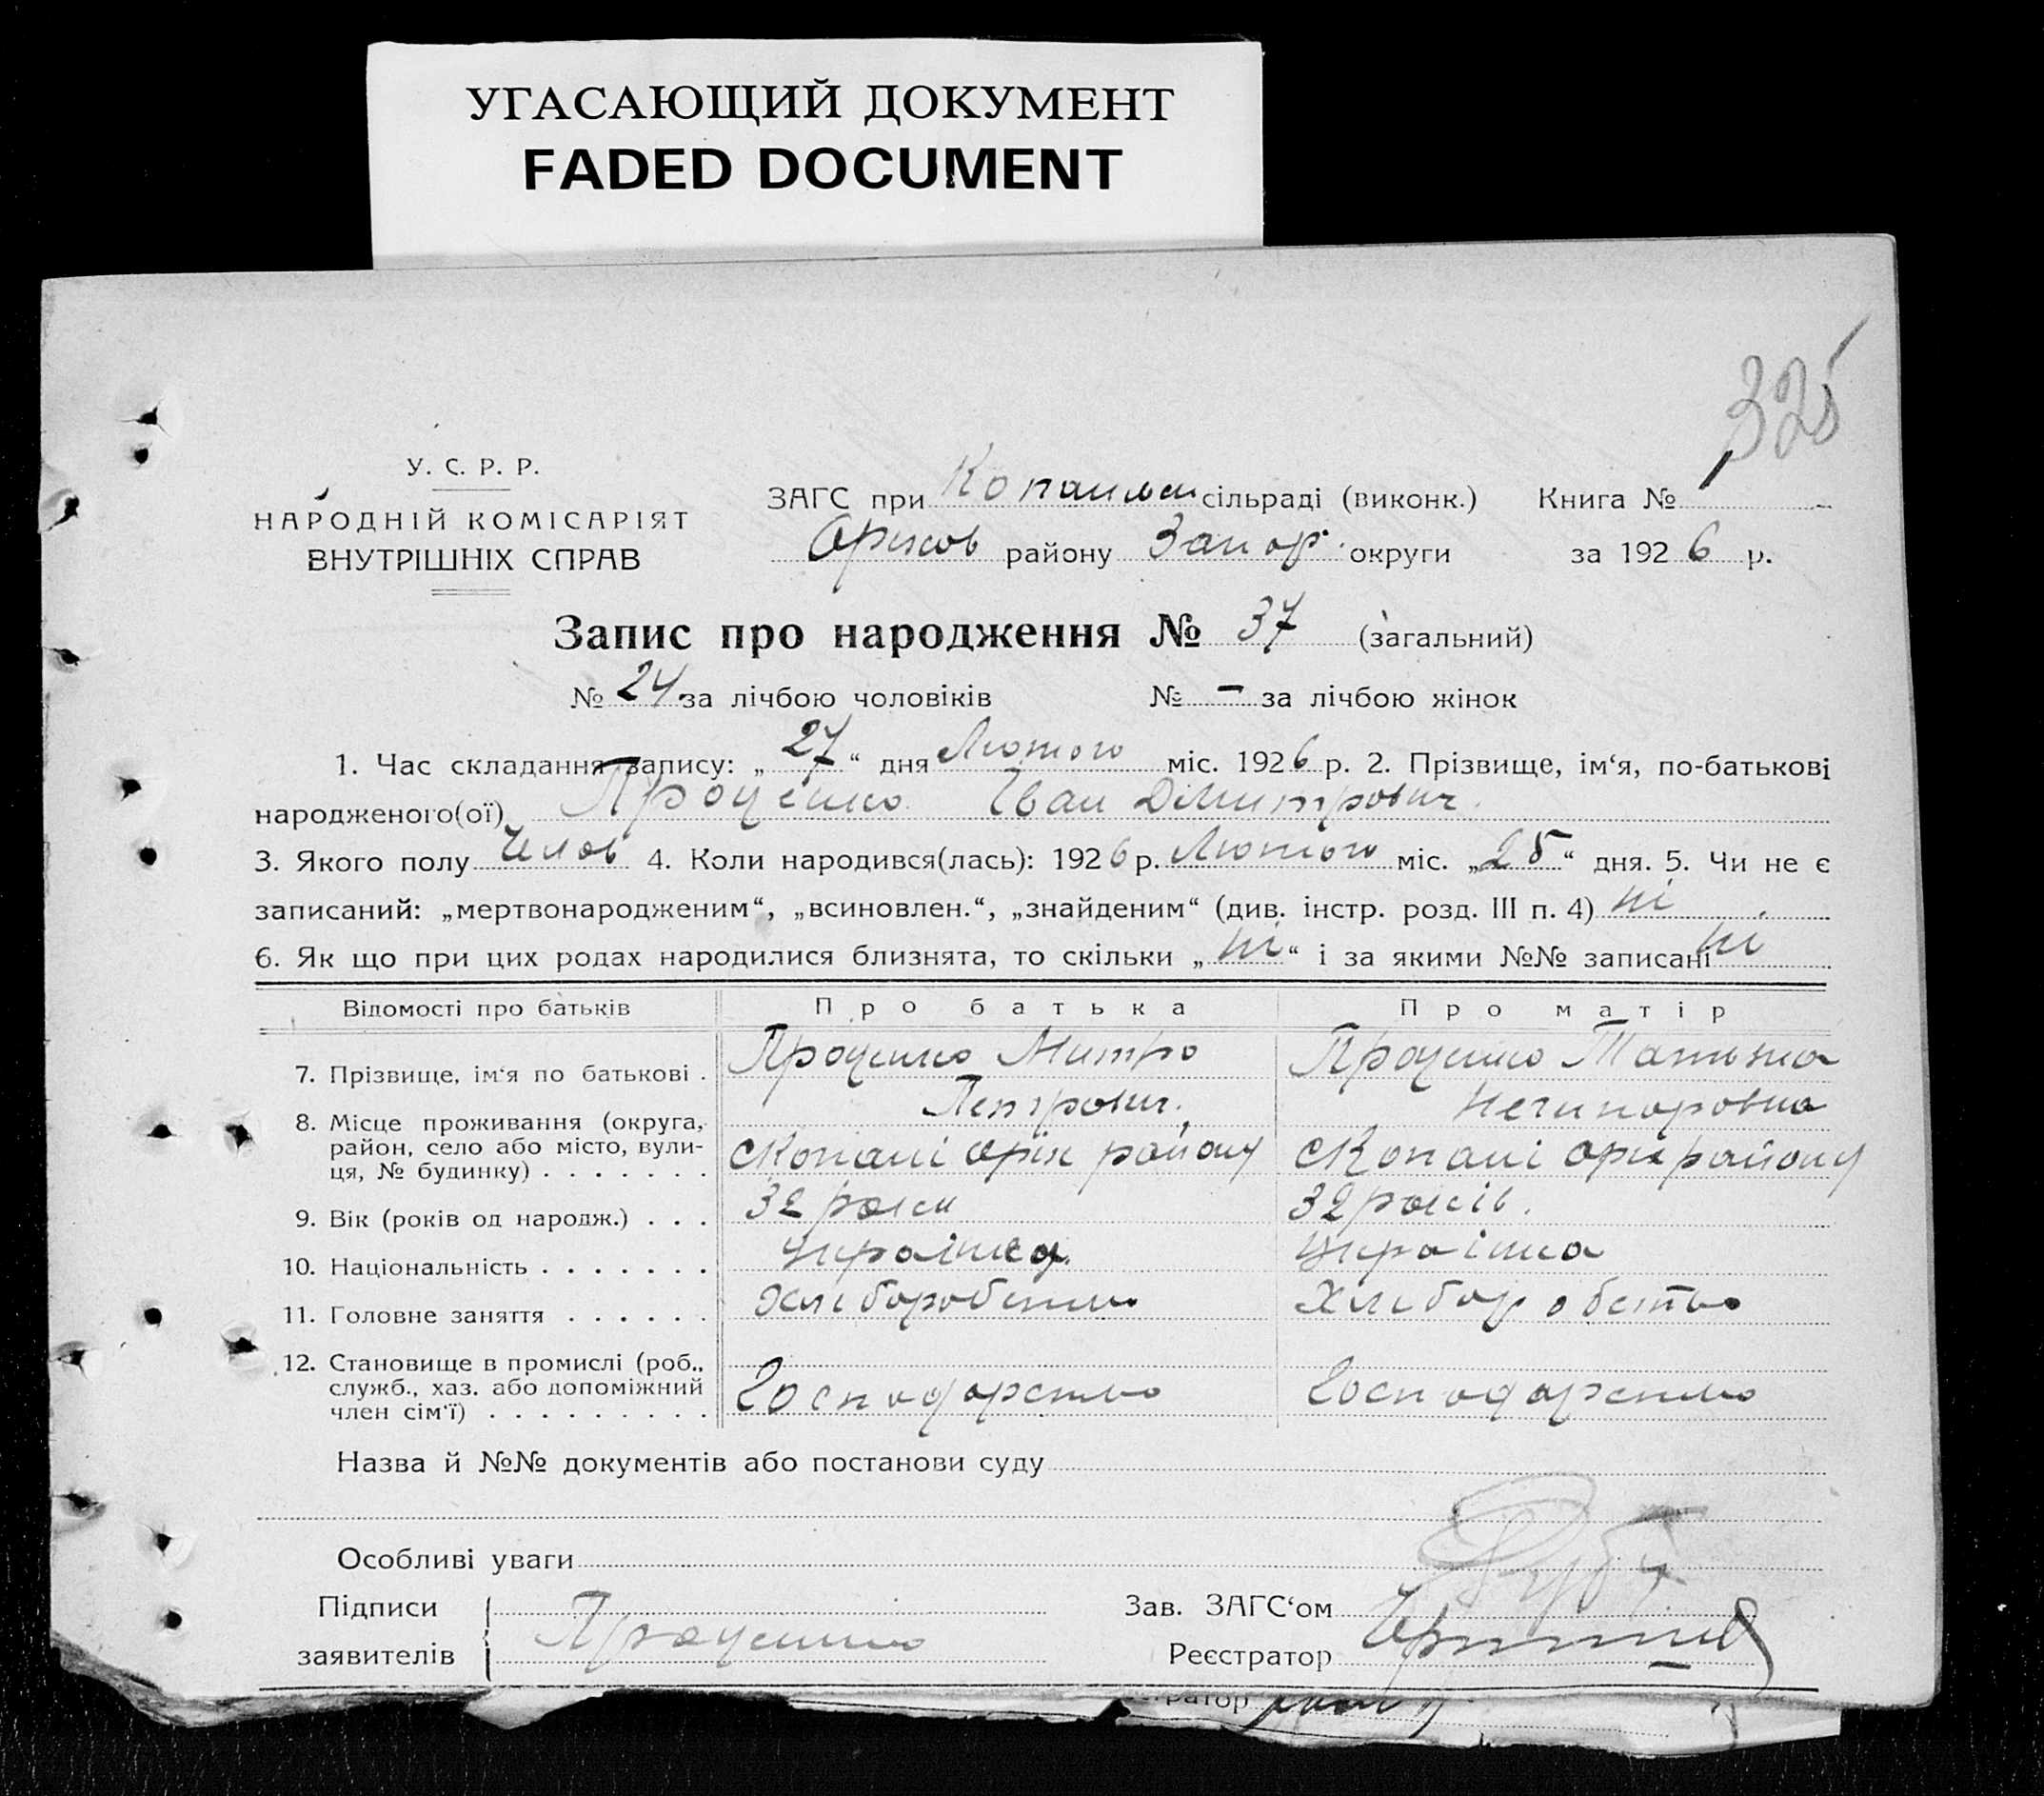 УГАСАЮЩИЙ ДОКУМЕНТ
FADED DOCUMENT
325
У. С. Р. Р.
НАРОДНІЙ КОМІСАРІЯТ
ВНУТРІШНІХ СПРАВ
ЗАГС при сільраді (виконк.) Книга №
Оріхов району Запор. округи за 1926 р.
Запис про народження № 37 (загальний)
№ 24 за лічбою чоловіків № — за лічбою жінок
1. Час складання запису: „27“ дня Лютого міс. 1926 р. 2. Прізвище, ім‘я, по-батькові
народженого(ої) Проценко Іван Дмитрович.
3. Якого полу Челов 4. Коли народився(лась): 1926 р. Лютого міс. „25“ дня. 5. Чи не є
записаний: „мертвонародженим“, „всиновлен.“, „знайденим“ (див. інстр. розд. III п. 4) ні
6. Як що при цих родах народилися близнята, то скільки „ні“ і за якими №№ записані ні
Відомості про батьків Про батька Про матір
7. Прізвище, ім‘я по батькові . Проценко Митро Проценко Татьяна
Петрович. Нечипоровна
8. Місце проживання (округа,
район, село або місто, вули-
ця, № будинку) . . . . . . . с Копані Оріх району с Копані Оріх району
9. Вік (років од народж.) . . . 32 роки 32 років.
10. Національність . . . . . . . Українец. Українка
11. Головне заняття . . . . . . Хлеборобство Хлеборобство
12. Становище в промислі (роб.,
служб., хаз. або допоміжний
член сім‘ї) . . . . . . . . . Господарство Господарство
Назва й №№ документів або постанови суду
Особливі уваги
Підписи
заявителів Проценко
Зав. ЗАГС‘ом
Реєстратор